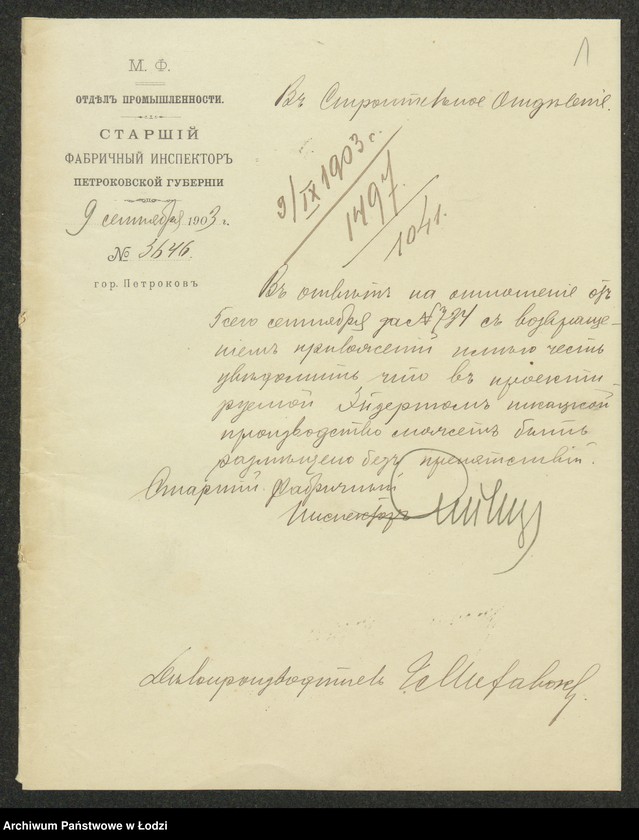 1
М. Ф.
ОТДѢЛЪ ПРОМЫШЛЕННОСТИ.
СТАРШІЙ
ФАБРИЧНЫЙ ИНСПЕКТОРЪ
ПЕТРОКОВСКОЙ ГУБЕРНІИ
9 сентября 1903 г.
№ 3646.
гор. Петроковъ
Въ Строительное Отдѣленіе.
9/IX 1903 г.
1497
1041.
Въ отвѣтъ на отношеніе отъ
5 сего сентября за № 784 съ возвраще-
ніемъ приложеній имѣю честь
увѣдомить что въ проекти-
руемой Эйдертомъ ткацкой
производство можетъ быть
размѣщено безъ препятствій.
Старшій Фабричный
Инспекторъ
Дѣлопроизводитель
Archiwum Państwowe w Łodzi